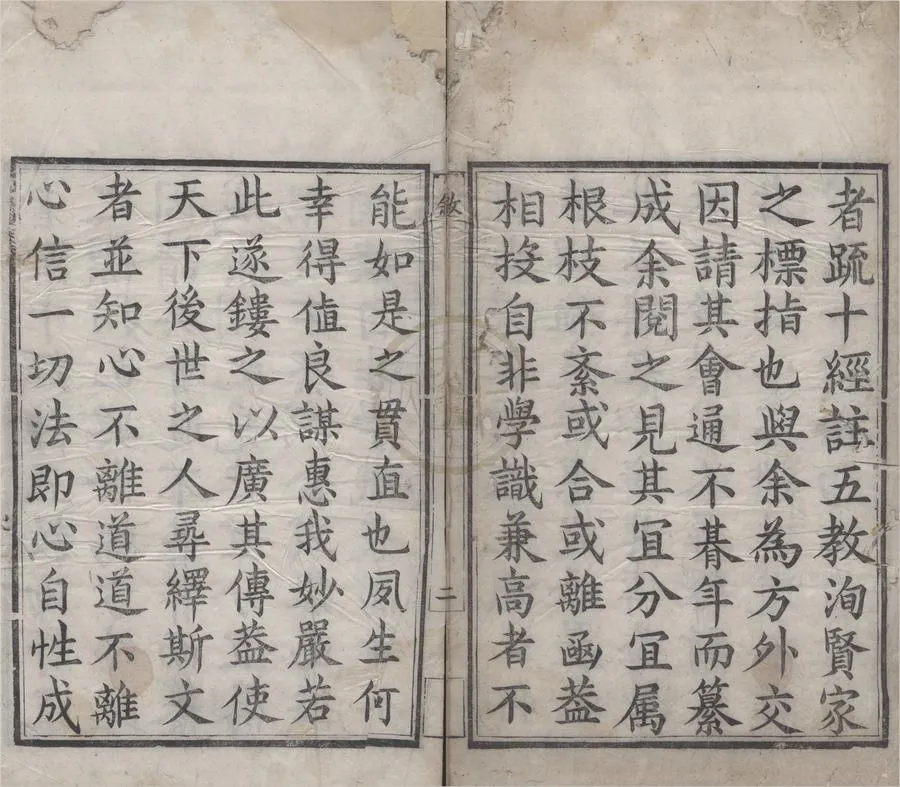 者䟽十經註五教洵賢家
之標指也與余為方外交
因請其會通不朞年而纂
成余閱之見其冝分冝属
根枝不紊或合或離凾葢
相投自非學識兼高者不
敘
二
能如是之貫直也夙生何
幸得值良謀惠我妙嚴若
此遂鏤之以廣其傳葢使
天下後世之人尋繹斯文
者並知心不離道道不離
心信一切法即心自性成